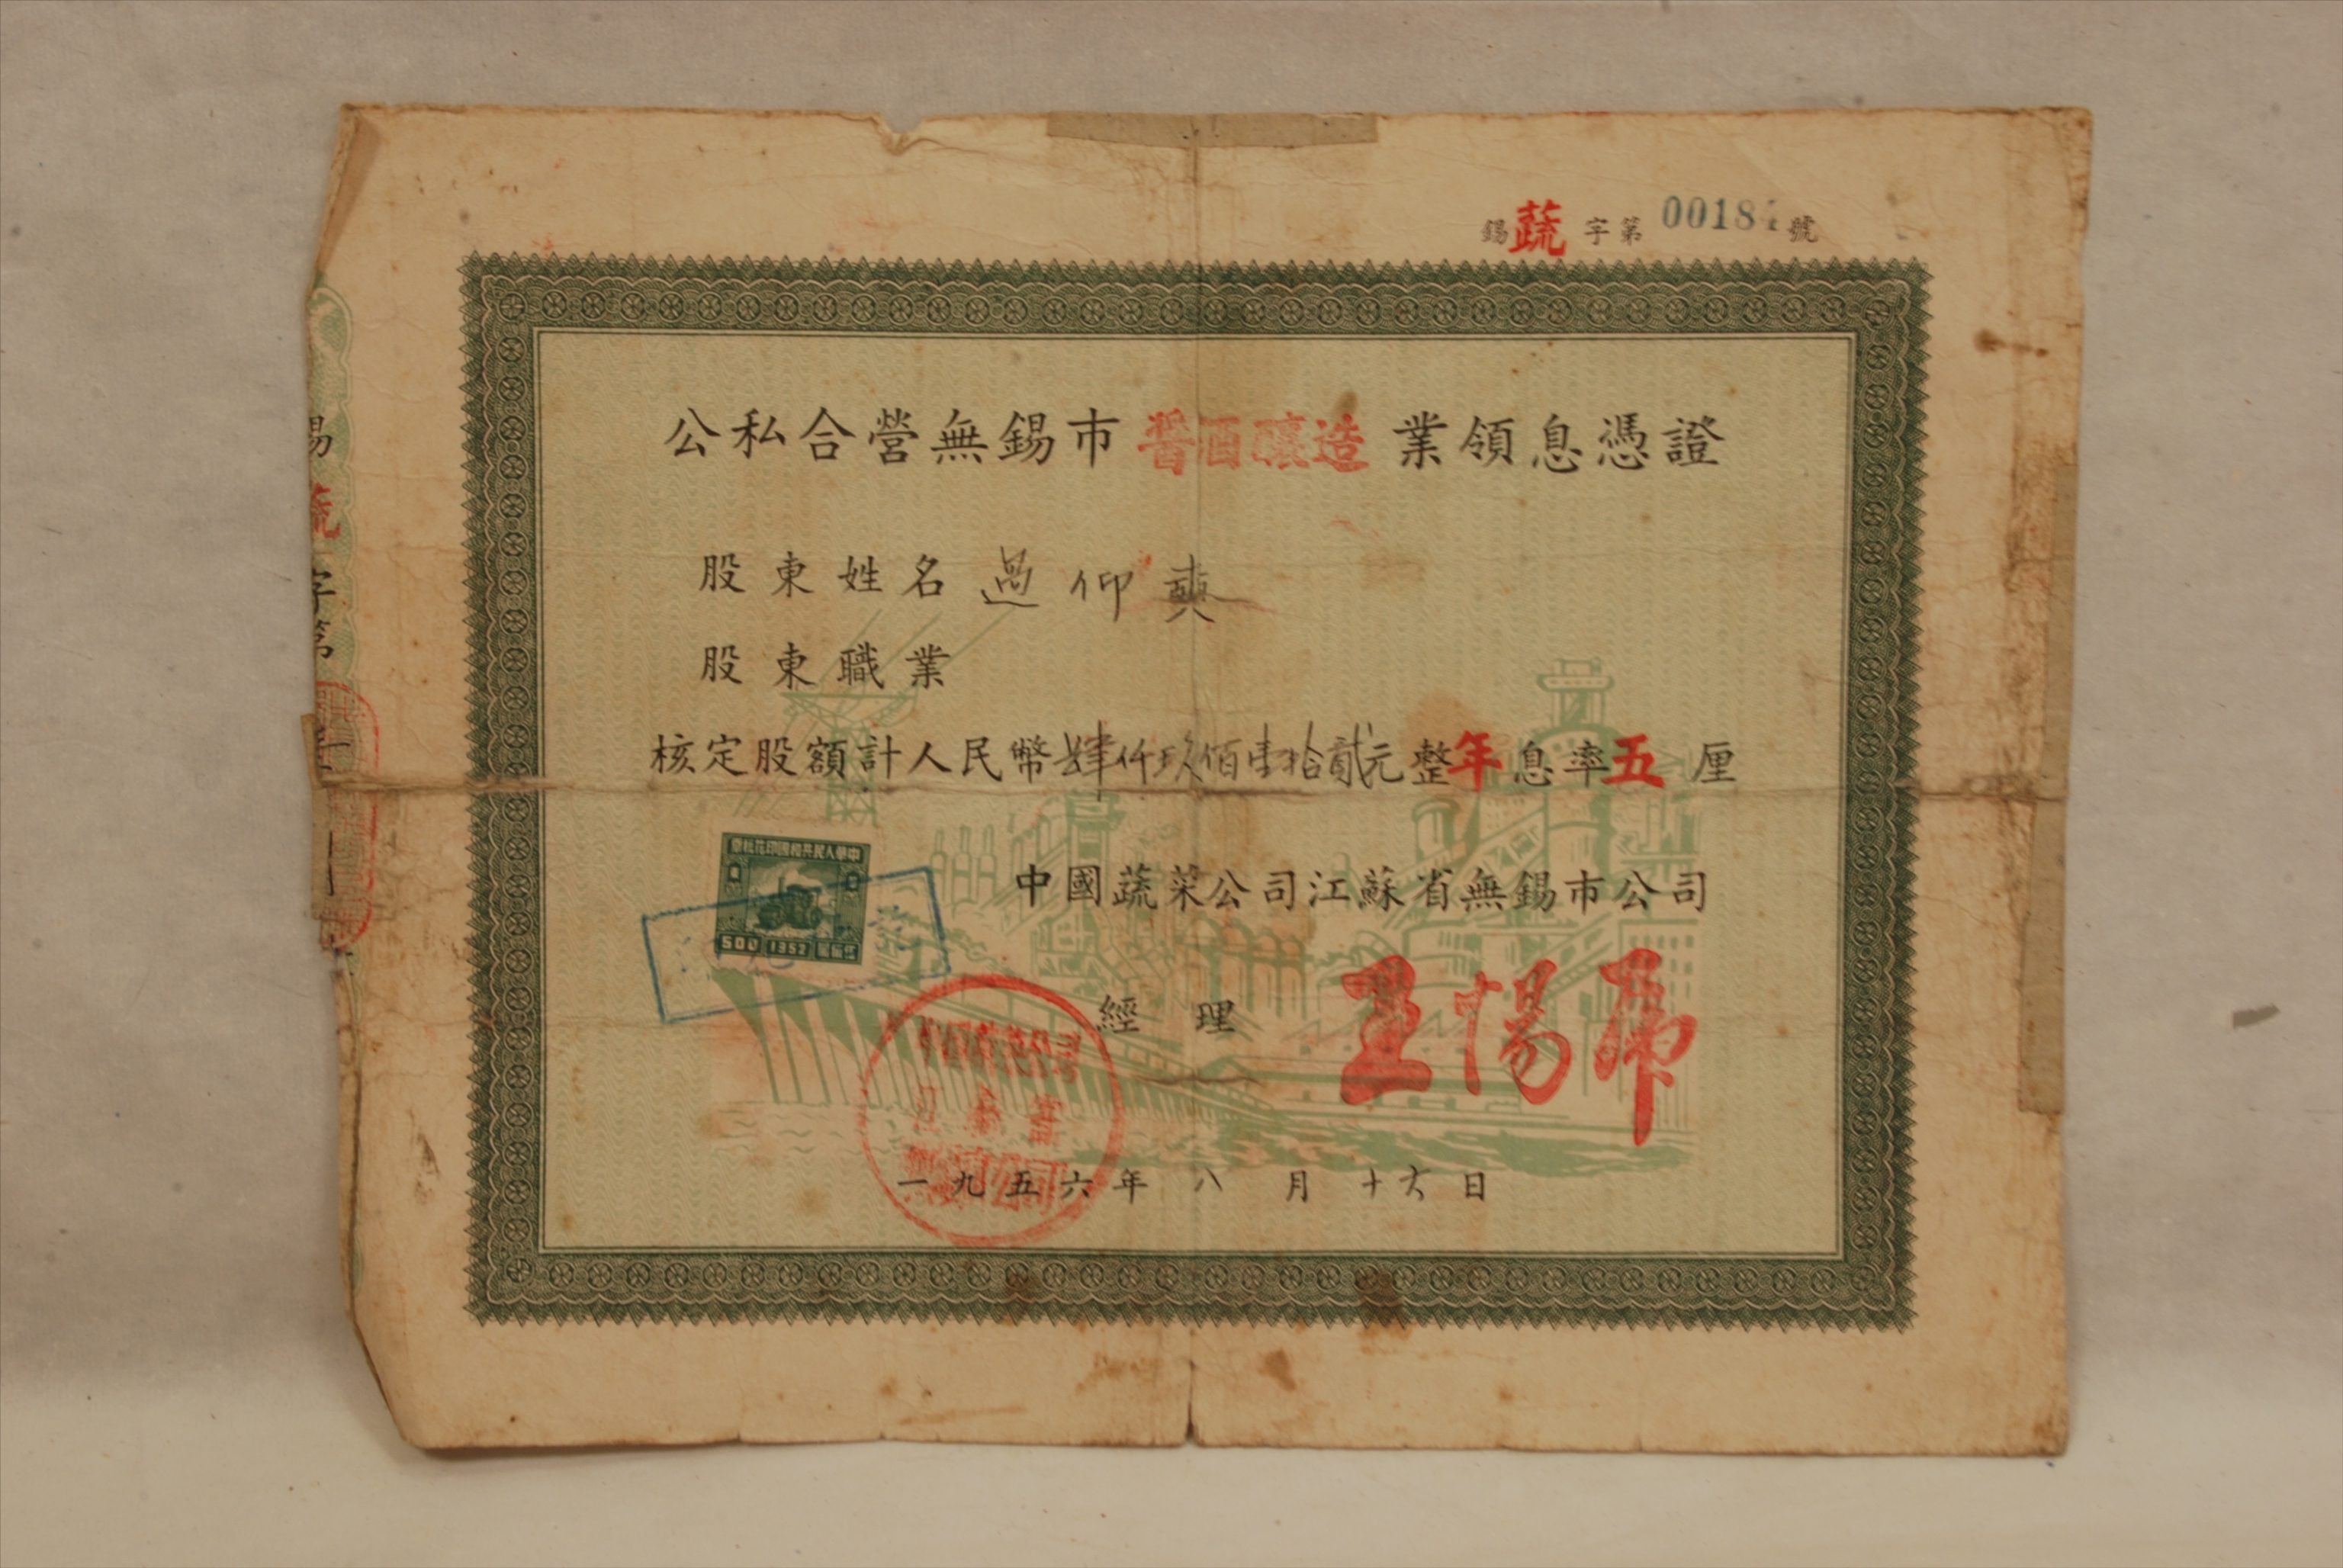 錫蔬字第 00184 號
公私合營無錫市醬酒釀造業領息憑證
股東姓名 過仰奭
股東職業
核定股額計人民幣肆仟玖佰壹拾貳元整年息率五厘
中國蔬菜公司江蘇省無錫市公司
經理
一九五六年八月十六日
中華人民共和國印花稅票
500 1952
錫蔬字第